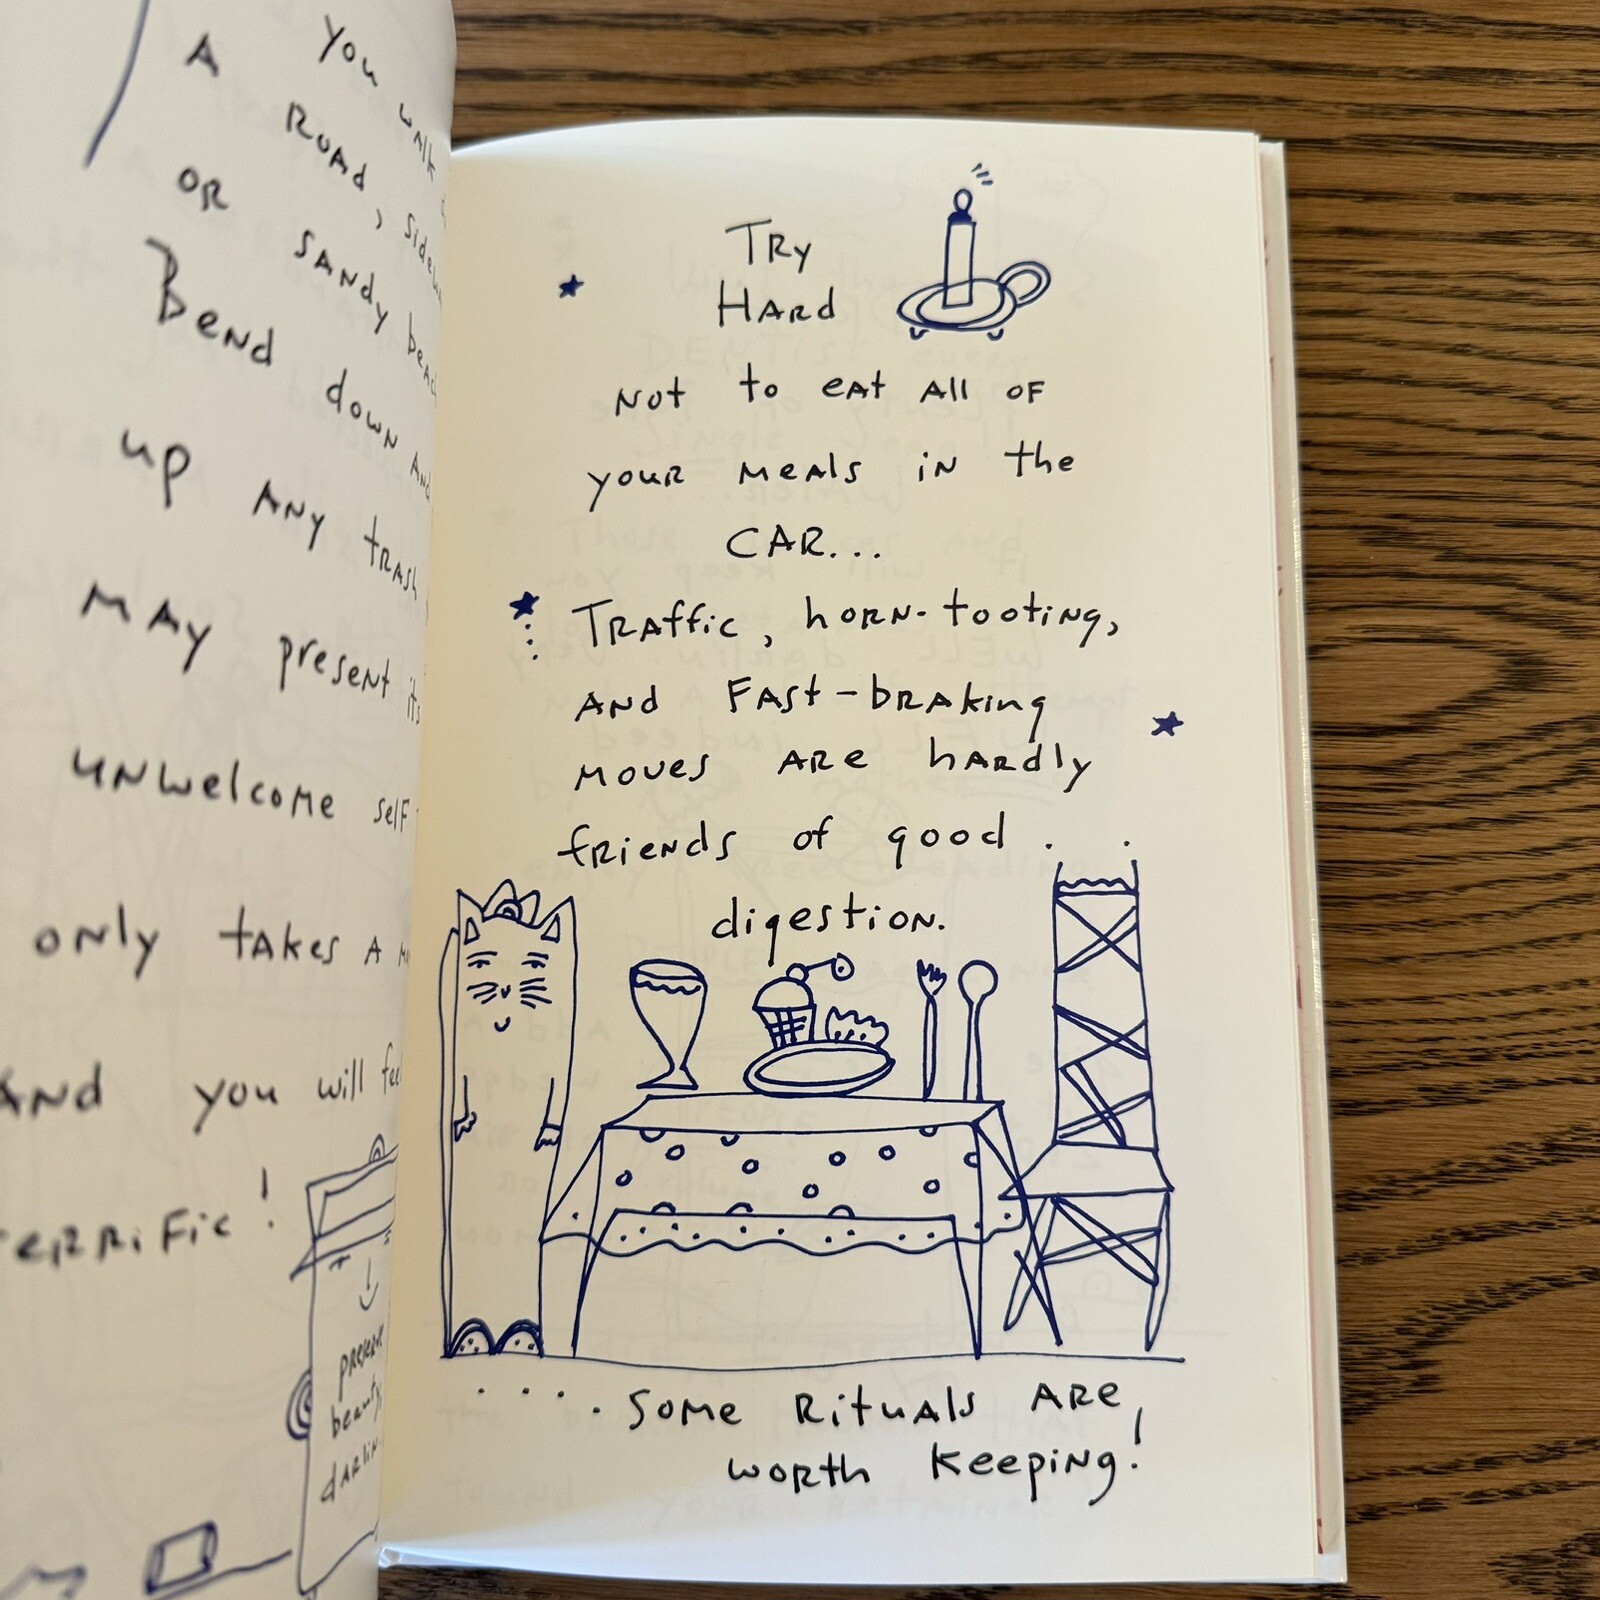 you walk
A ROAD, Sidew
OR SANDY beac
Bend down AND
up ANY TRASH
MAY present its
UNwelcome self
only takes A
And you will feel
TERRIFIC!
preserve
beauty,
darlin.
TRy
HARd
NOT to eat All OF
youR MeAls iN the
CAR...
TRAffic, hoRN-tooting,
AND FASt-bRAking
moves ARe hARdly
fRiends of good . .
digestion.
.... Some Rituals ARe
woRth keeping!